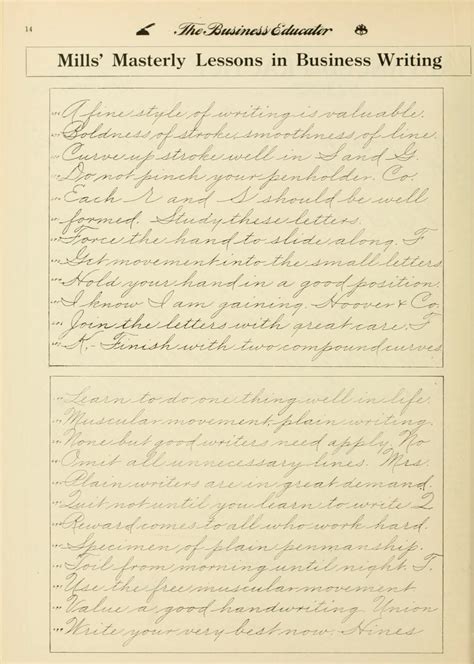 14
The Business Educator
Mills' Masterly Lessons in Business Writing
A fine style of writing is valuable.
Boldness of stroke, smoothness of line.
Curve up stroke well in S and G.
Do not pinch your penholder. Co.
Each r and s should be well
formed. Study these letters.
Force the hand to slide along. F
Get movement into the small letters
Hold your hand in a good position.
I know I am gaining. Hoover & Co.
Join the letters with great care. F
K,- Finish with two compound curves
Learn to do one thing well in life.
Muscular movement, plain writing.
None but good writers need apply. No
Omit all unnecessary lines. Mrs.
Plain writers are in great demand.
Quit not until you learn to write Q
Reward comes to all who work hard.
Specimen of plain penmanship.
Toil from morning until night. T.
Use the free muscular movement
Value a good handwriting. Union
Write your very best now. Hines